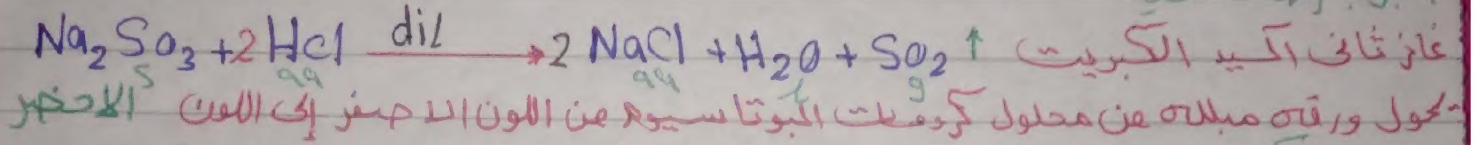 Na₂SO₃ + 2HCl dil → 2NaCl + H₂O + SO₂ ↑ غاز ثانى أكسيد الكبريت
s aq aq l g
تحول ورقه مبلله من محلول كرومات البوتاسيوم من اللون الاصفر إلى اللون الاخضر